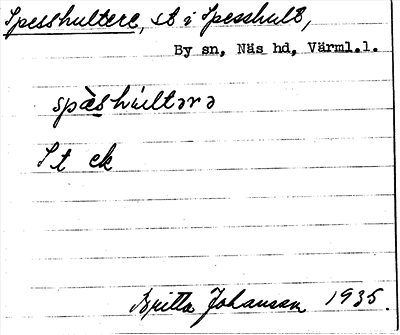 Spesshultere, st i Spesshult,
By sn, Näs hd, Värml.l.
spæ̀shúltərə
St ek
Britta Johansson 1935.